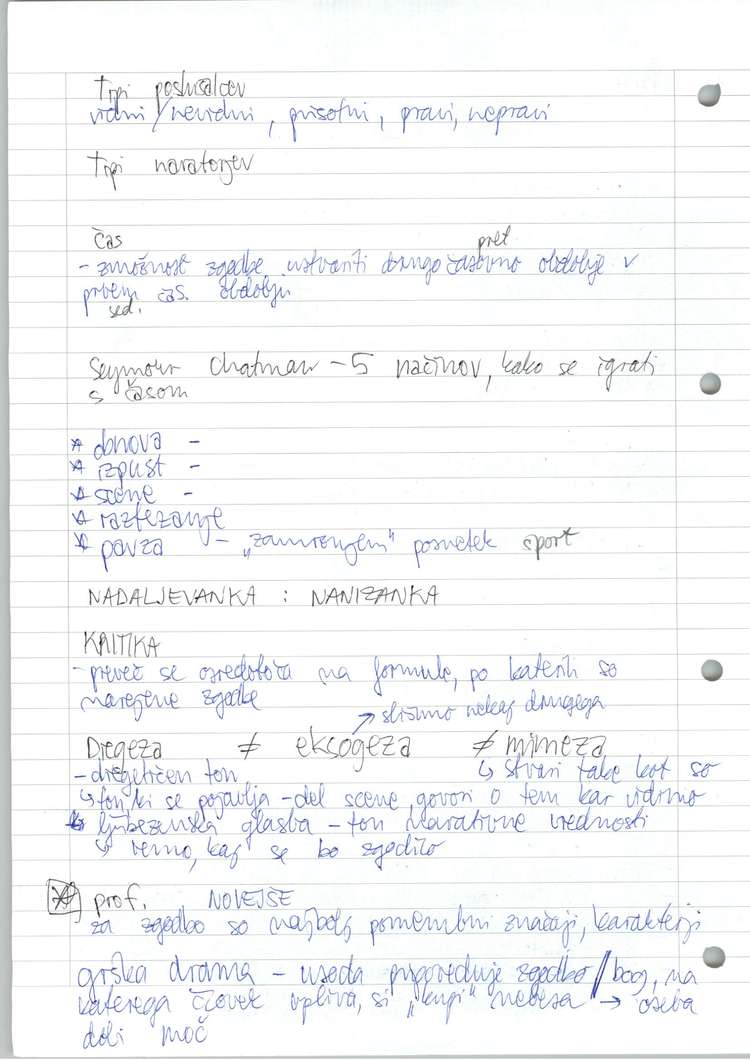 Tipi poslušalcev
vidni / nevidni, prisotni, pravi, nepravi
Tipi naratorjev
čas
pret
- zmožnost zgodbe ustvariti drugo časovno obdobje v
prvem čas. obdobju
sed.
Seymour Chatman - 5 načinov, kako se igrati
s časom
* obnova -
* izpust -
* scene -
* raztezanje
* pavza - „zamrznjen“ posnetek šport
NADALJEVANKA : NANIZANKA
KRITIKA
- preveč se osredotoča na formule, po katerih so
narejene zgodbe
→ slišimo nekaj drugega
Diegeza ≠ eksogeza ≠ mimeza
- diegetičen ton ↳ stvari take kot so
↳ ton, ki se pojavlja - del scene, govori o tem kar vidimo
↳ ljubezenska glasba - ton narativne vrednosti
↳ vemo, kaj se bo zgodilo
* prof. NOVEJŠE
za zgodbo so najbolj pomembni značaji, karakterji
grška drama - useda pripoveduje zgodbo / bog, na
katerega človek vpliva, si „kupi“ nebesa → oseba
dobi moč